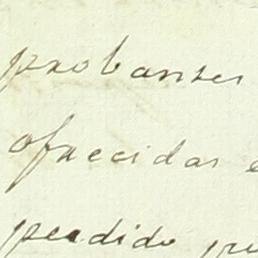 probantes
ofrecidas e
perdido pr